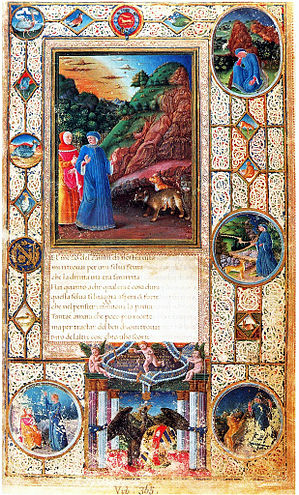 mezo del camin di nostra vita
mi ritrovai per una selva scura
che la diritta via era smarrita
Hai quanto a dir qual era e cosa dura
questa selva selvaggia aspra e forte
che nel pensier rinova la paura
Tant e amara che poco piu e morte
ma per tractar del ben
diro dell altre cose
Urb. 365.